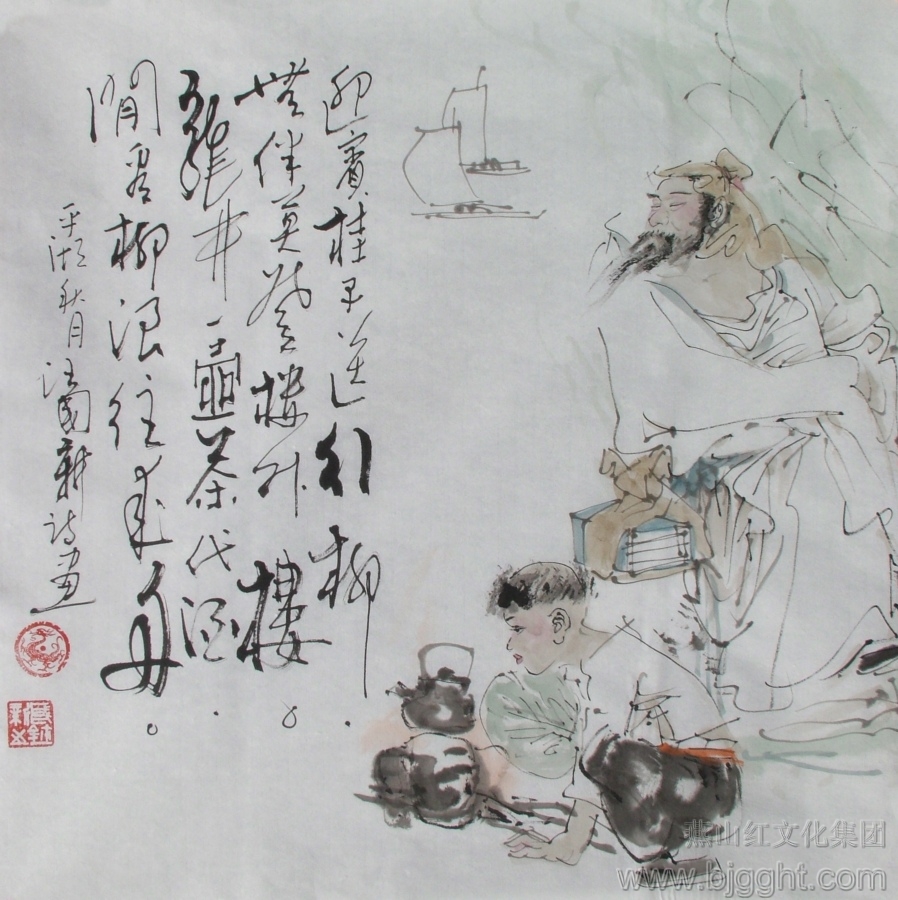 迎賓桂子送行柳
無伴莫登楼外樓
龍井一壺茶代酒
閒看柳浪往來舟
平湖秋月 汪國新詩畫
燕山红文化集团
www.bjgght.com